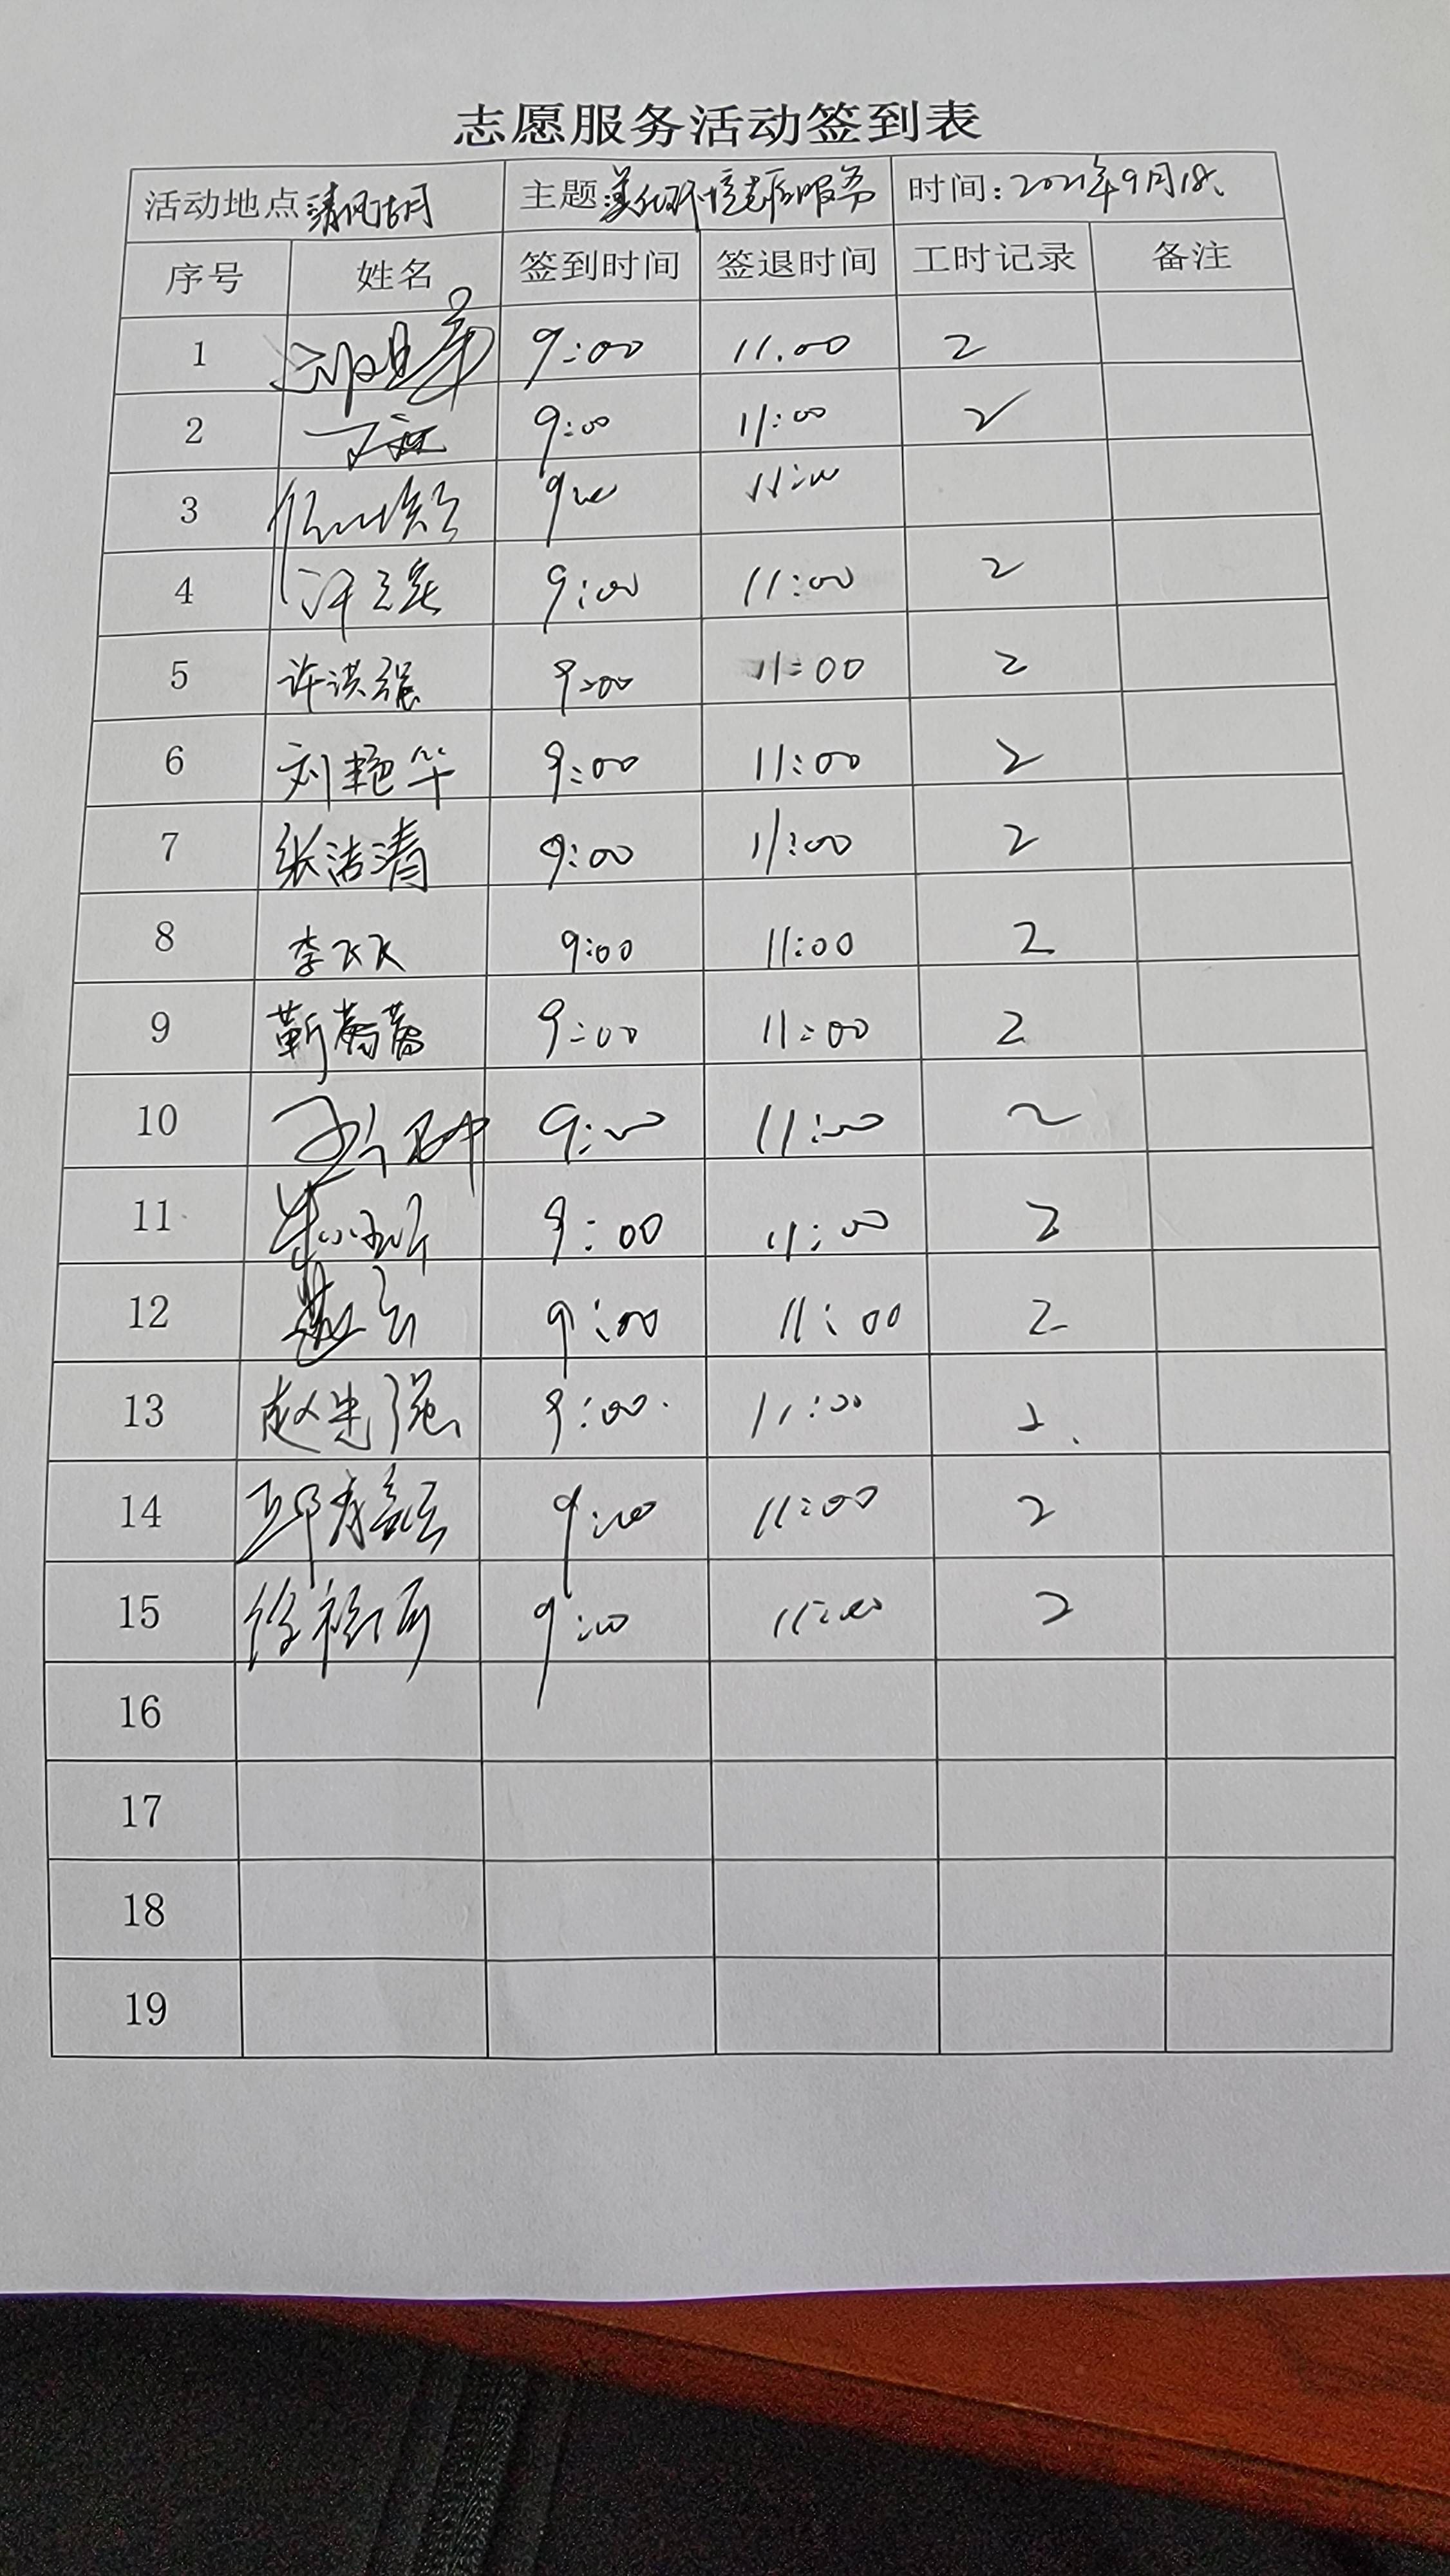 志愿服务活动签到表
活动地点 清风胡同 主题:美化环境志愿服务 时间:2021年9月18、
序号 姓名 签到时间 签退时间 工时记录 备注
1 9:00 11.00 2
2 9:00 11:00 2
3 9:00 11:00
4 9:00 11:00 2
5 许洪强 9:00 11:00 2
6 刘艳华 9:00 11:00 2
7 张洁清 9:00 11:00 2
8 李飞飞 9:00 11:00 2
9 靳 9:00 11:00 2
10 9:00 11:00 2
11 9:00 11:00 2
12 9:00 11:00 2
13 赵忠强 9:00 11:00 2
14 9:00 11:00 2
15 9:00 11:00 2
16
17
18
19